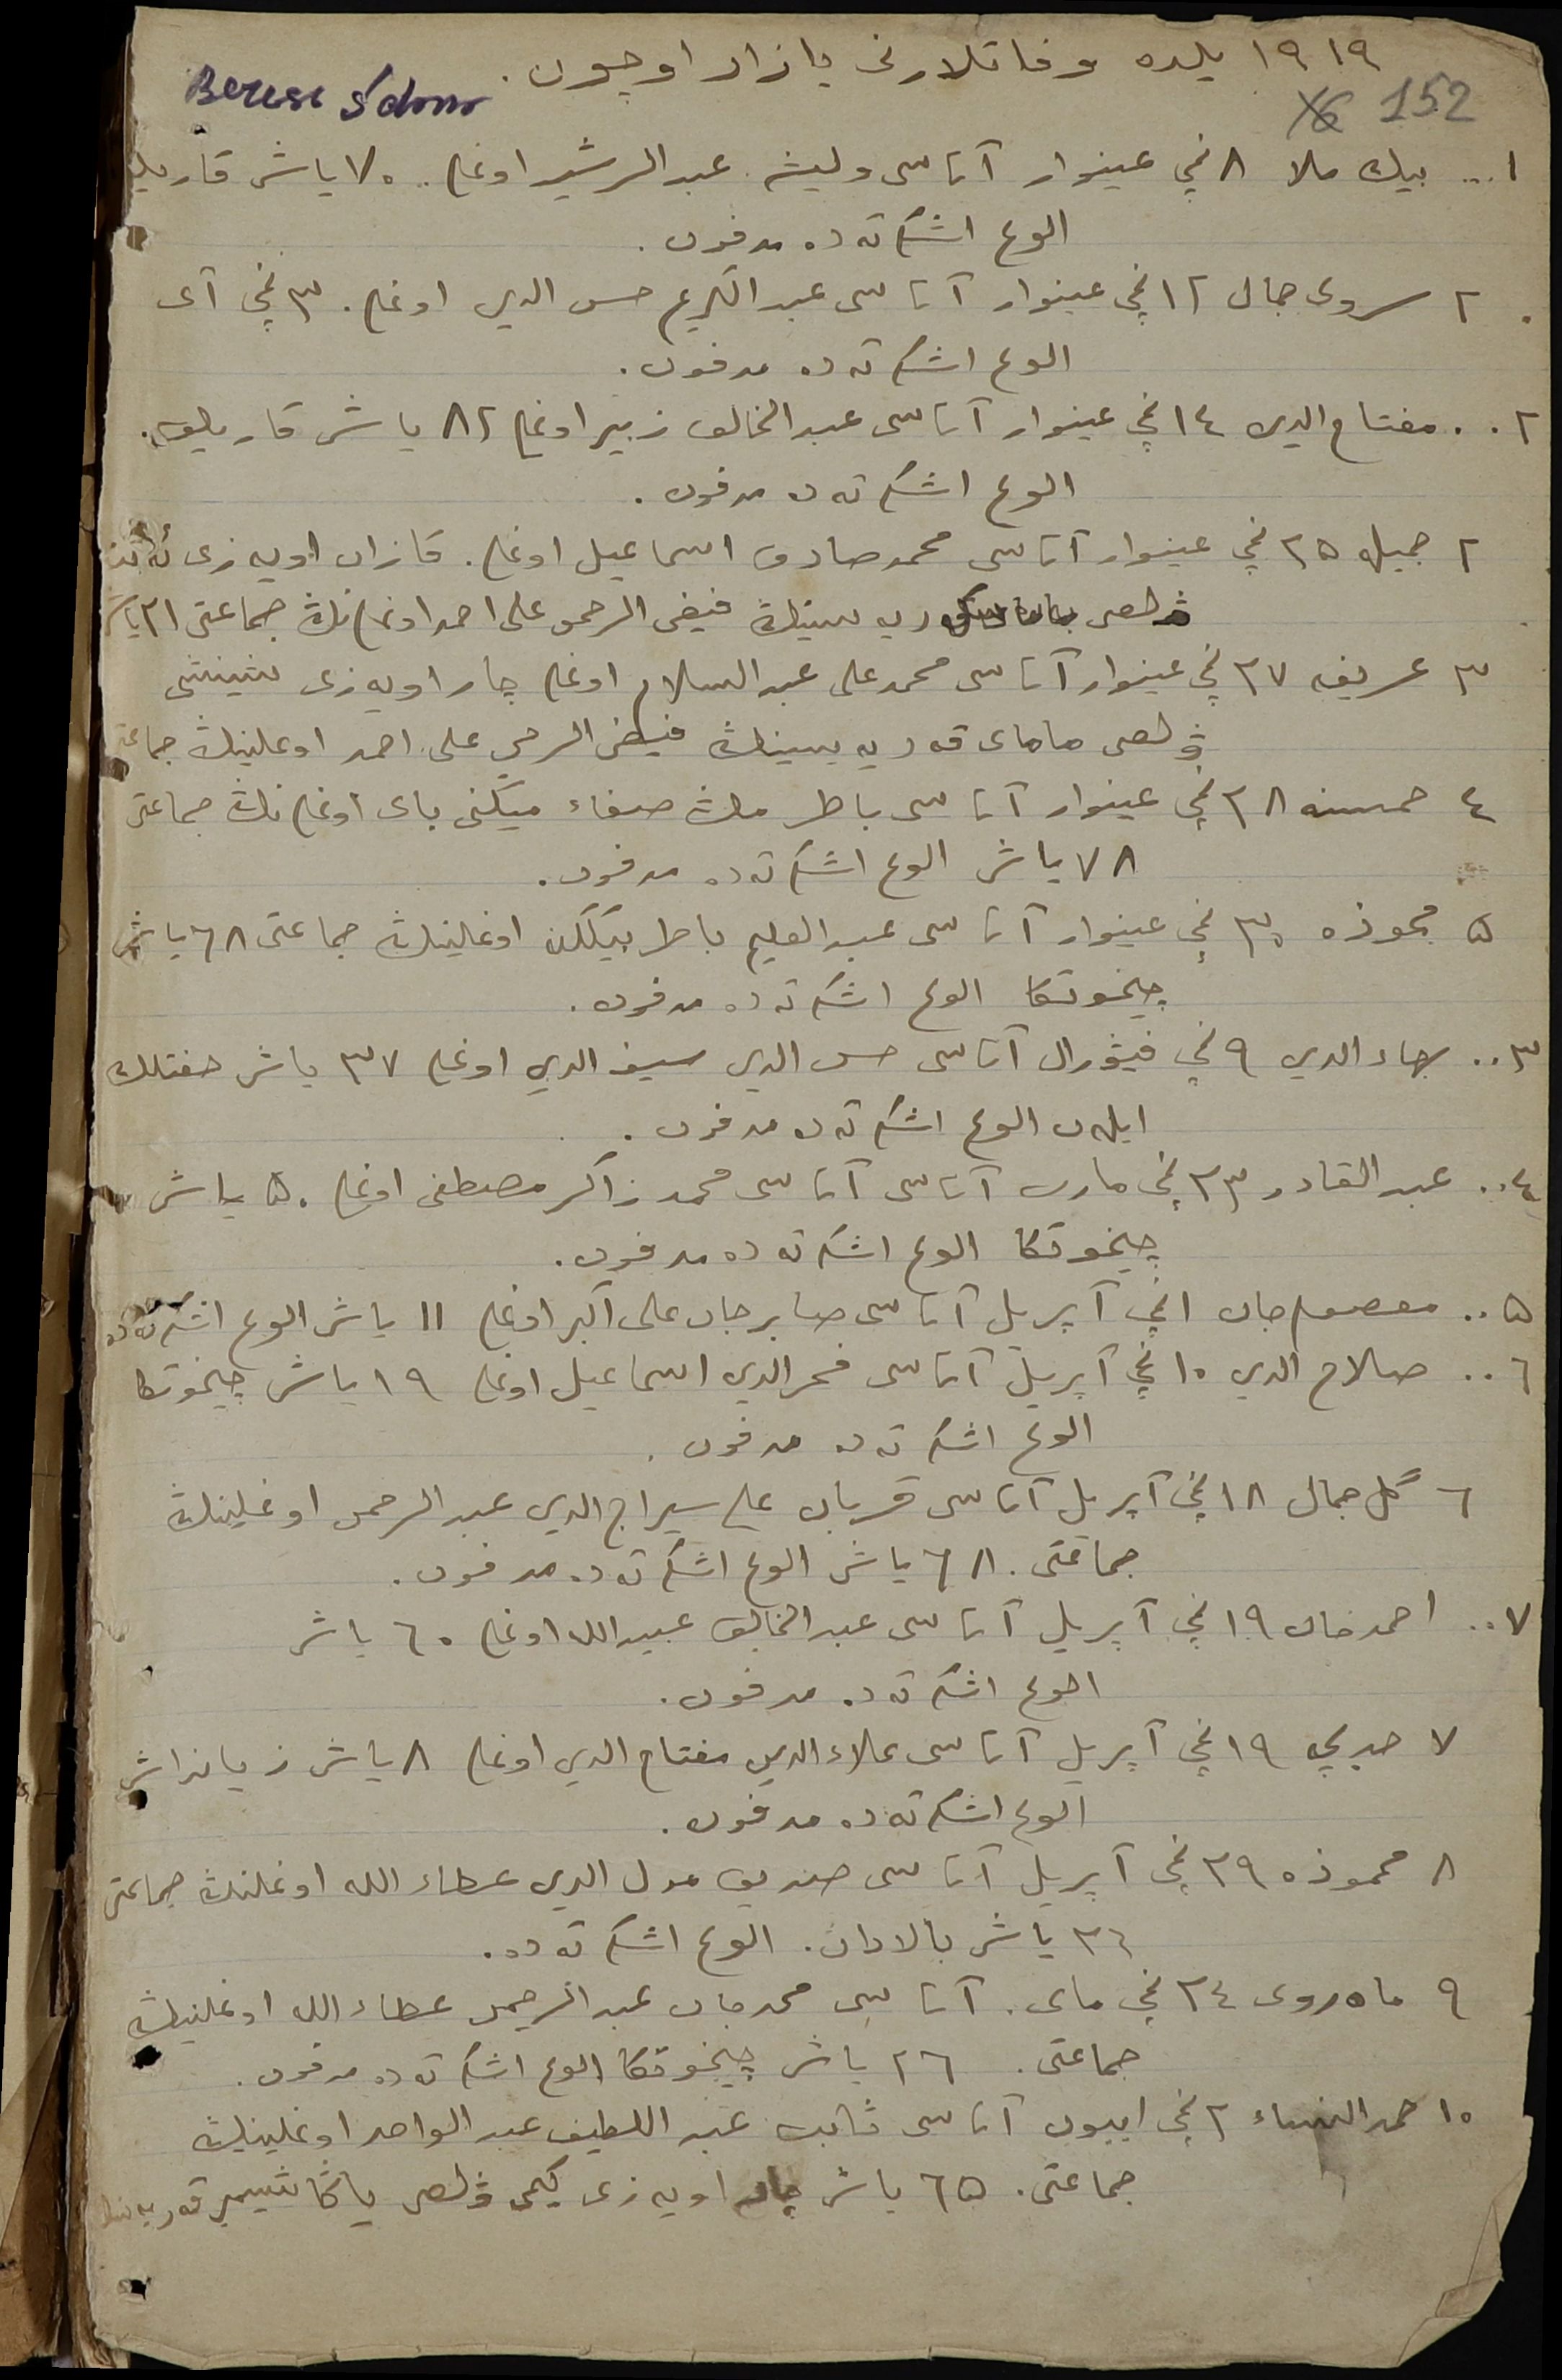 ١٩١٩ يلده وفاتلارنى يازار اوچون.
152
١... بيك ملا ٨ نچى عينوار آتاسى وليشه عبد الرشيد اوغلى. ٧٠ ياش قارىلق
الوغ اشكرته ده مدفون.
٢ سروى جمال ١٢ نچى عينوار آتاسى عبد الكريم حسن الدين اوغلى. ٣ نچى آى
الوغ اشكرته ده مدفون.
٢.. مفتاح الدين ١٤ نچى عينوار آتاسى عبد الخالق زبير اوغلى ٨٢ ياش قاريلق.
الوغ اشكرته ده مدفون.
٢ جميله ٢٥ نچى عينوار آتاسى محمد صادق اسماعيل اوغلى. قازان اويه زى
ۋلصى فيض الرحمن على احمد اوغلىنڭ جماعتى ٢١ ياش
٣ عريفه ٢٧ نچى عينوار آتاسى محمد على عبد السلام اوغلى چار اويه زى
ۋلصى ماماى قه ريه سينڭ فيض الرحمن على احمد اوغلينڭ جماعتى
٤ حسنه ٢٨ نچى عينوار آتاسى باطر ملڭ صفاء ميكنى باى اوغلىنڭ جماعتى
٧٨ ياش الوغ اشكرته ده مدفون.
٥ محوذه ٣٠ نچى عينوار آتاسى عبد العليم باطر بيككن اوغلينڭ جماعتى ٦٨ ياش
چيخوتكا الوغ اشكرته ده مدفون.
٣.. بهاء الدين ٩ نچى فيۋرال آتاسى حسن الدين سيف الدين اوغلى ٣٧ ياش خفتلك
ايله ن الوغ اشكرته ده مدفون.
٤.. عبد القادر ٢٣ نچى مارت آتاسى آتاسى محمد ذاكر مصطفى اوغلى ٥٠ ياش
چيخوتكا الوغ اشكرته ده مدفون.
٥.. معصوم جان ١ نچى آپريل آتاسى صابر جان على اكبر اوغلى ١١ ياش الوغ اشكرته ده
٦.. صلاح الدين ١٠ نچى آپريل آتاسى فخر الدين اسماعيل اوغلى ١٩ ياش چيخوتكا
الوغ اشكرته ده مدفون.
٦ گل جمال ١٨ نچى آپريل آتاسى قربان على سراج الدين عبد الرحمن اوغلينڭ
جماعتى. ٦٨ ياش الوغ اشكرته ده مدفون.
٧.. احمد خان ١٩ نچى آپريل آتاسى عبد الخالق عبيد الله اوغلى ٦٠ ياش
الوغ اشكرته ده مدفون.
٧ ١٩ نچى آپريل آتاسى علاء الدين مفتاح الدين اوغلى ٨ ياش
الوغ اشكرته ده مدفون.
٨ محموذه ٢٩ نچى آپريل آتاسى عطاء الله اوغلنڭ جماعتى
٣٦ ياش بالادان. الوغ اشكرته ده.
٩ ماه روى ٢٤ نچى ماى. آتاسى محمد جان عبد الرحمن عطاء الله اوغلينڭ
جماعتى. ٢٦ ياش چيخوتكا الوغ اشكرته ده مدفون.
١٠ حمد النساء ٢ نچى اييون آتاسى ثابت عبد اللطيف عبد الواحد اوغلينڭ
جماعتى. ٦٥ ياش چار اويه زى ۋلصى